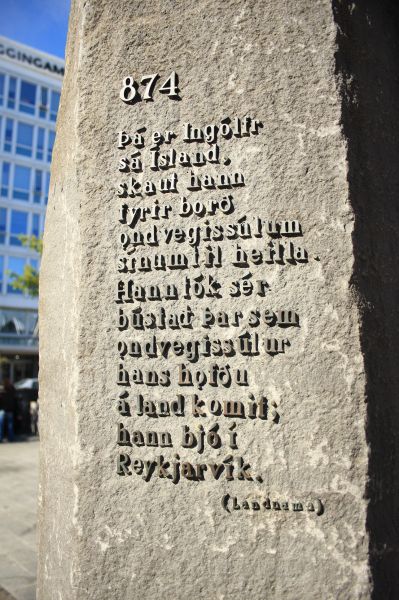 GGINGAM
874
Þá er Ingólfr
sá Ísland,
skaut hann
fyrir borð
ǫndvegissúlum
sínum til heilla.
Hann tók sér
bústað þar sem
ǫndvegissúlur
hans hǫfðu
á land komit;
hann bjó í
Reykjarvík.
(Landnáma)